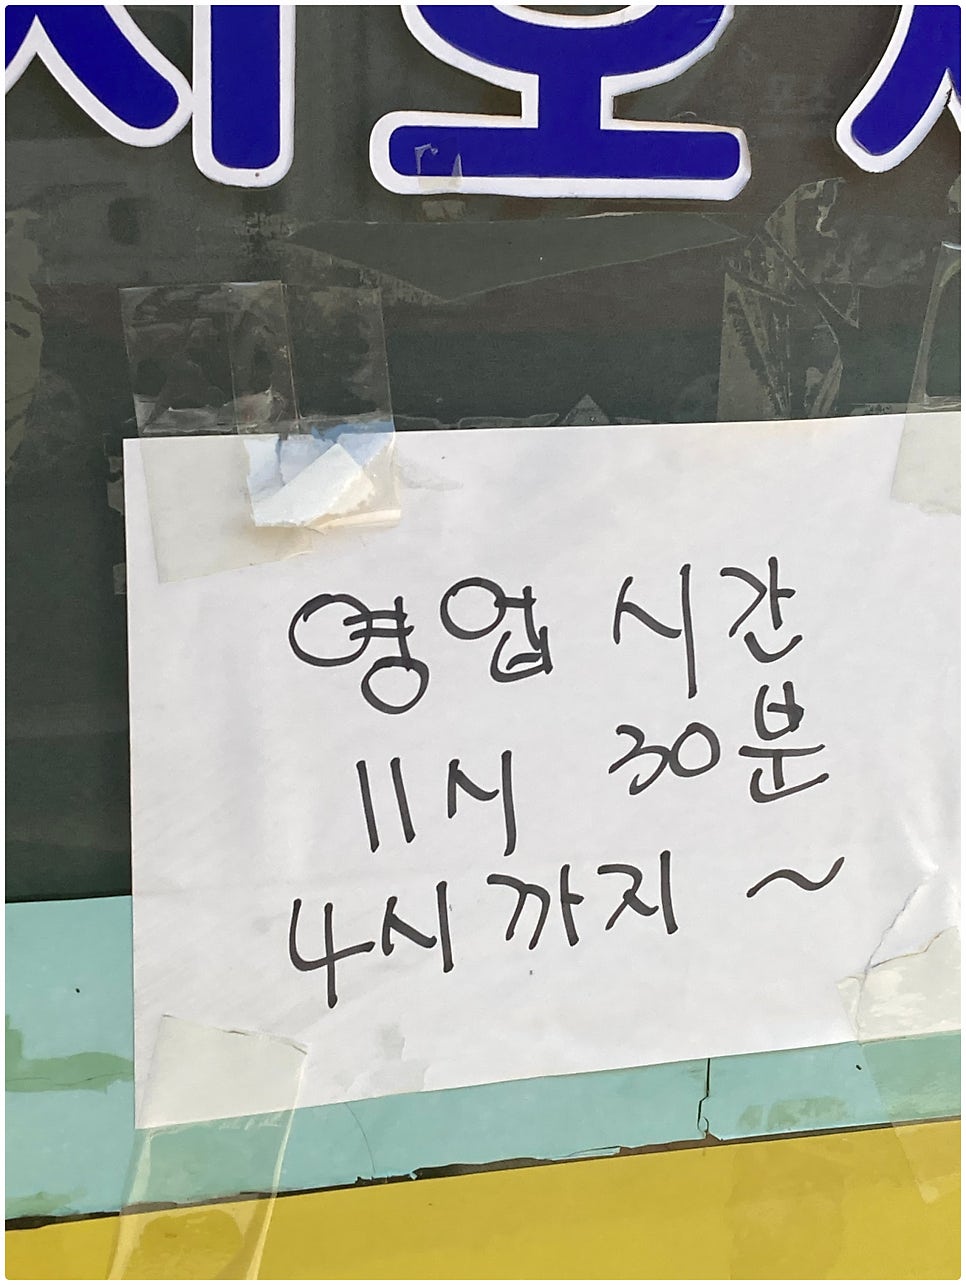 영업 시간
11시 30분
4시까지 ~